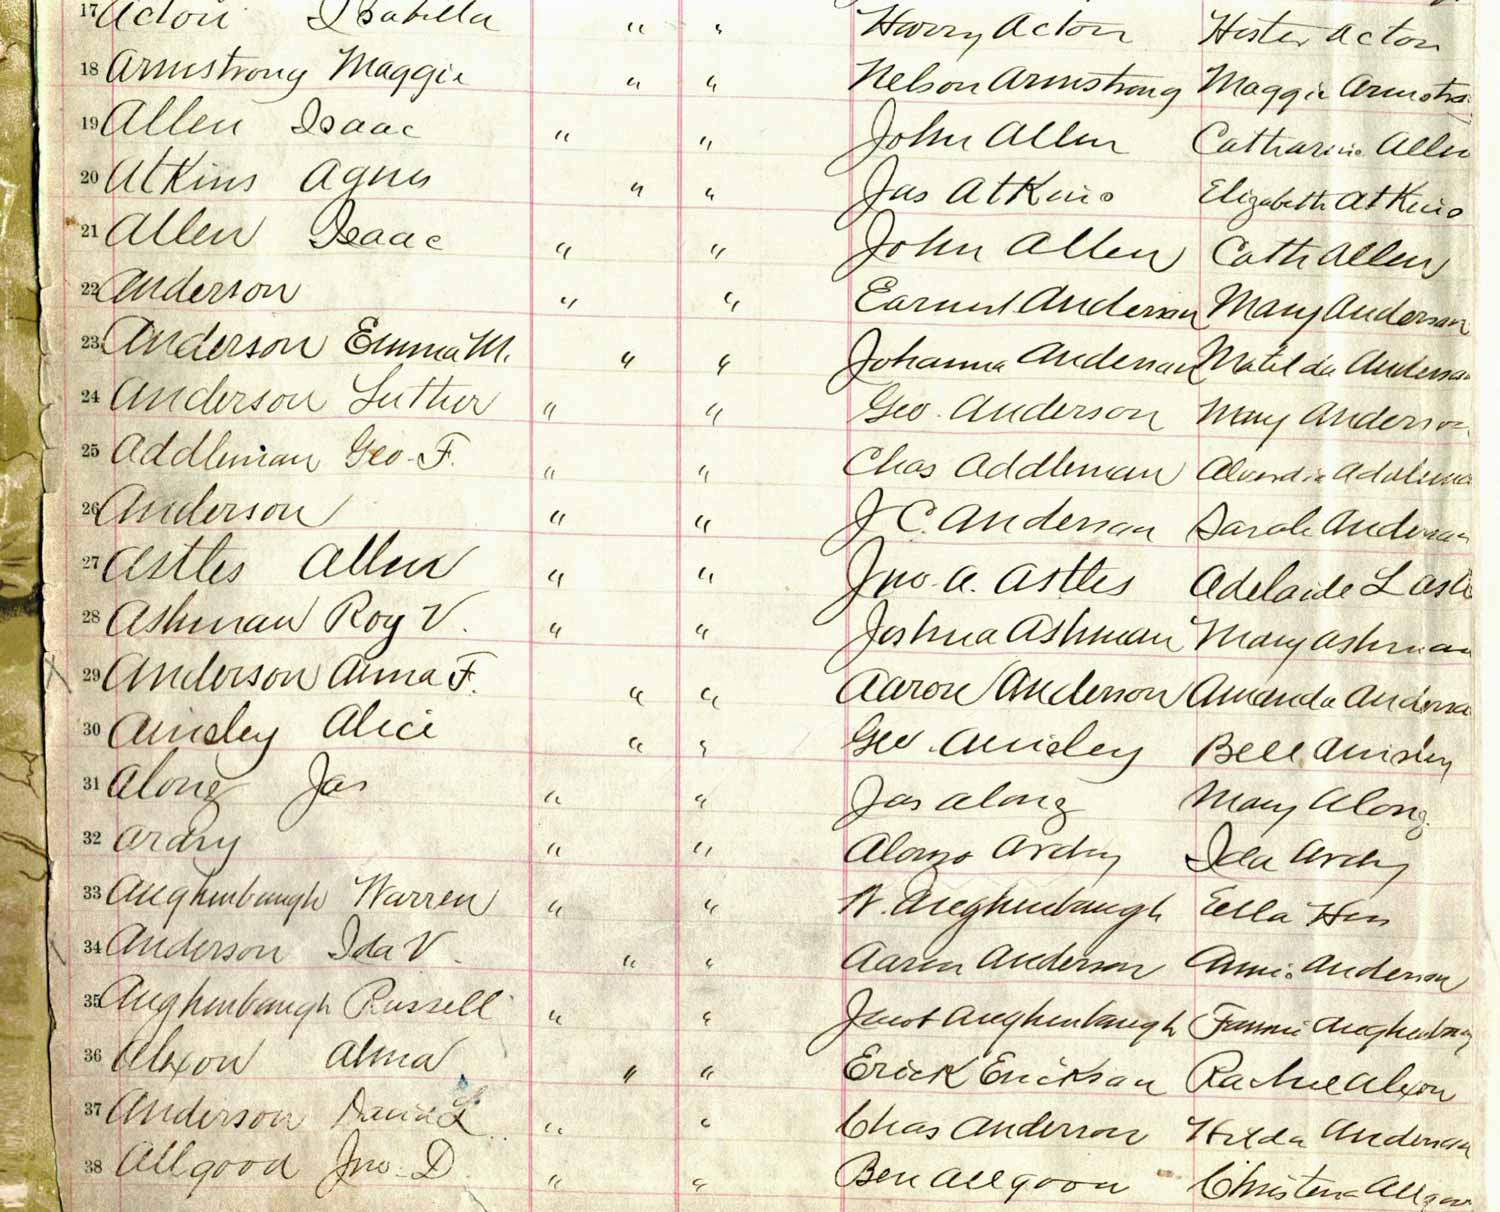 17 Acton Isabella " " Harry Acton Hester Acton
18 Armstrong Maggie " " Nelson Armstrong Maggie Armstro
19 Allen Isaac " " John Allen Catharine Allen
20 Atkins Agnes " " Jas Atkins Elizabeth Atkins
21 Allen Isaac " " John Allen Cath Allen
22 Anderson " " Earnest Anderson Mary Anderson
23 Anderson Emma M. " " Johanna Anderson Matilda Anderson
24 Anderson Luther " " Geo. Anderson Mary Anderson
25 Addleman Geo. F. " " Chas Addleman Addlema
26 Anderson " " J C. Anderson Sarah Anderson
27 Astles Allen " " Jno. A. Astles Adelaide L Astl
28 Ashman Roy V. " " Joshua Ashman Mary Ashman
29 Anderson Anna F. " " Aaron Anderson Amanda Anderso
30 Ainsley Alice " " Geo. Ainsley Bell Ainsley
31 Along Jas " " Jas Along Mary Along
32 Ardry " " Alonzo Ardry Ida Ardry
33 Aughenbaugh Warren " " W. Aughenbaugh Ella
34 Anderson Ida V. " " Aaron Anderson Annie Anderson
35 Aughenbaugh Russell " " Jacob Aughenbaugh Fannie Aughenbaug
36 Alexon Alma " " Erick Erickson Rachel Alexon
37 Anderson David L. " " Chas Anderson Hilda Anderson
38 Allgood Jno. D. " " Ben Allgood Christena Allgoo